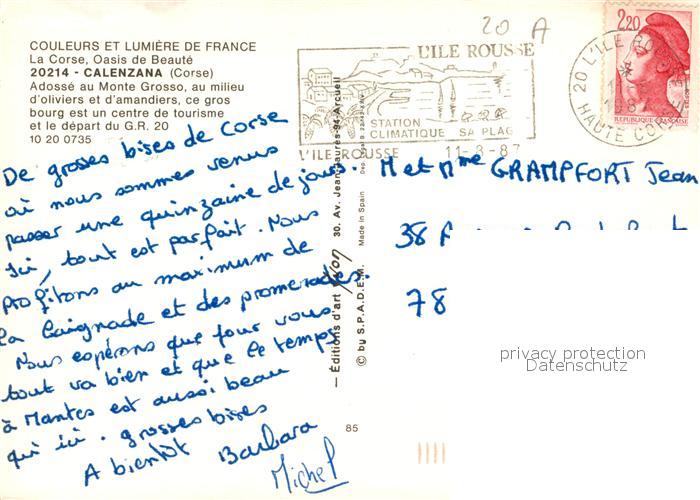 COULEURS ET LUMIÈRE DE FRANCE
La Corse, Oasis de Beauté
20214 - CALENZANA (Corse)
Adossé au Monte Grosso, au milieu
d'oliviers et d'amandiers, ce gros
bourg est un centre de tourisme
et le départ du G.R. 20
10 20 0735
De grosses bises de Corse
où nous sommes venus
passer une quinzaine de jours.
Ici, tout est parfait. Nous
profitons au maximum de
la baignade et des promenades.
Nous espérons que pour vous
tout va bien et que le temps
à Mantes est aussi beau
qu'ici. grosses bises
A bientôt Barbara
Michel
85
— Éditions d'art yvon 30. Av. Jean-Jaurès-94-Arcueil
© by S.P.A.D.E.M. Made in Spain
20 A
L'ILE ROUSSE
STATION
CLIMATIQUE SA PLAG
L'ILE ROUSSE 11-8-87
20 L'ILE ROUSSE
HAUTE CORSE
2,20
REPUBLIQUE FRANÇAISE
M et Mme GRAMPFORT Jean
38
78
privacy protection
Datenschutz